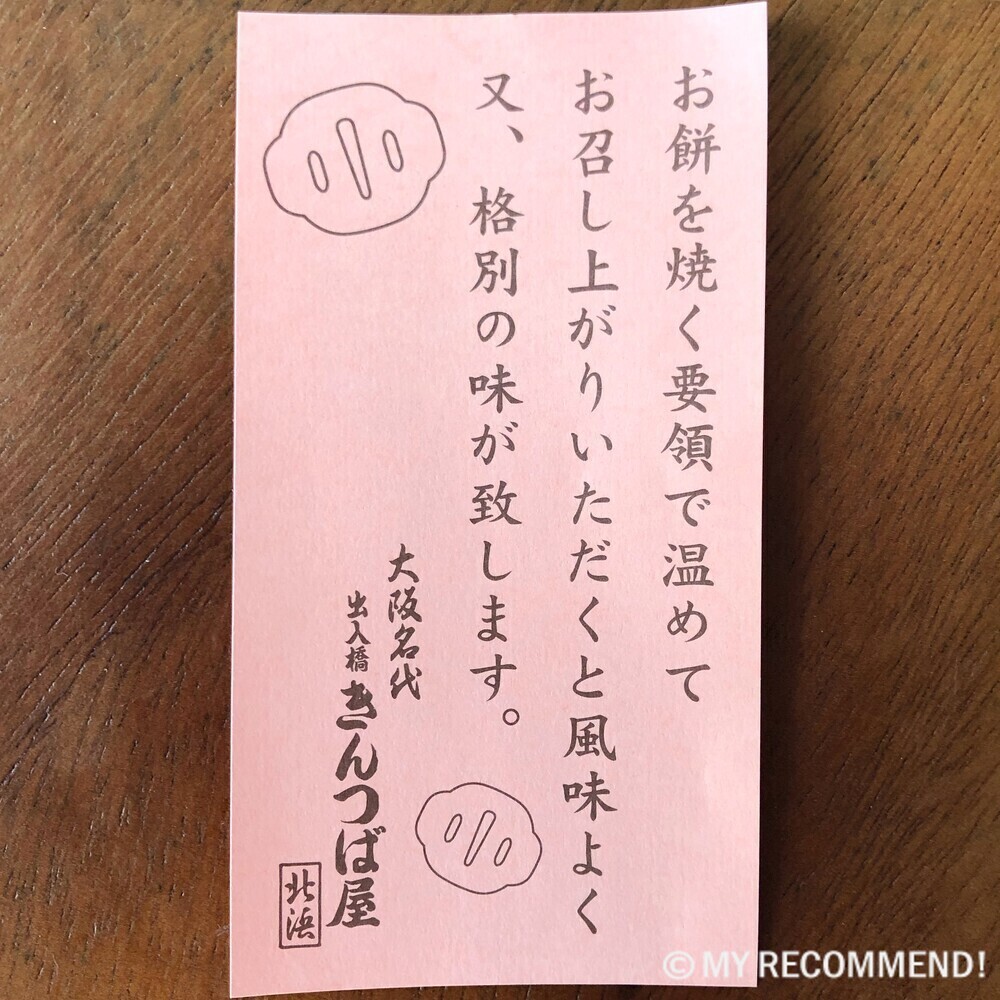 お餅を焼く要領で温めて
お召し上がりいただくと風味よく
又、格別の味が致します。
大阪名代
出入橋 きんつば屋
北浜
© MY RECOMMEND!